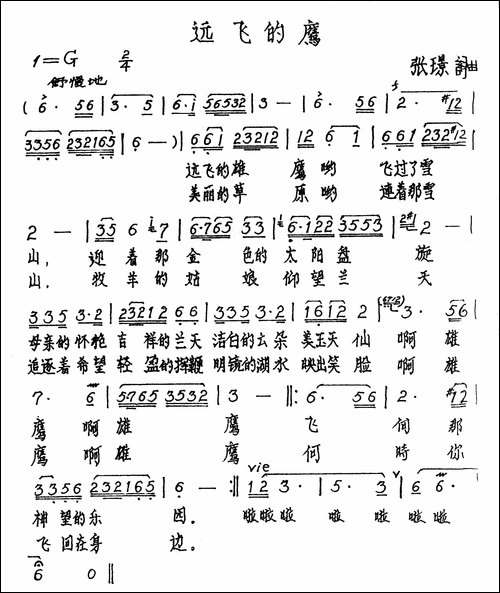 远飞的鹰
1=G 2/4
张璟 詞曲
舒慢地
( 6· 56 | 3· 5 | 6·i 56532 | 3 — | 6· 56 | 2· #12 |
3356 232165 | 6 — ) | 661 23212 | 12 6 1 | 661 232#12 |
远飞的雄 鹰哟 飞过了雪
美丽的草 原哟 連着那雪
2 — | 35 6 7 | 6·765 33 | 6·122 3553 | 2 — |
山, 迎着那金 色的太阳盘 旋
山. 牧羊的姑 娘仰望兰 天
335 3·2 | 23212 66 | 335 3·2 | 1612 2 | 3· 56 |
母亲的怀抱吉祥的兰天 洁白的云朵美玉天仙 啊雄
追逐着希望轻盈的挥鞭 明镜的湖水映出笑脸 啊雄
7· 6 | 5765 3532 | 3 — ‖: 6· 56 | 2· #12 |
鹰 啊雄 鹰 飞 向那
鹰 啊雄 鹰 何 時你
3356 232165 | 6 — :‖ 12 3· | 5· 3 | 6 6· |
vie
神望的乐 园. 啦啦啦 啦 啦 啦啦
飞回在身 边.
6 0 ‖